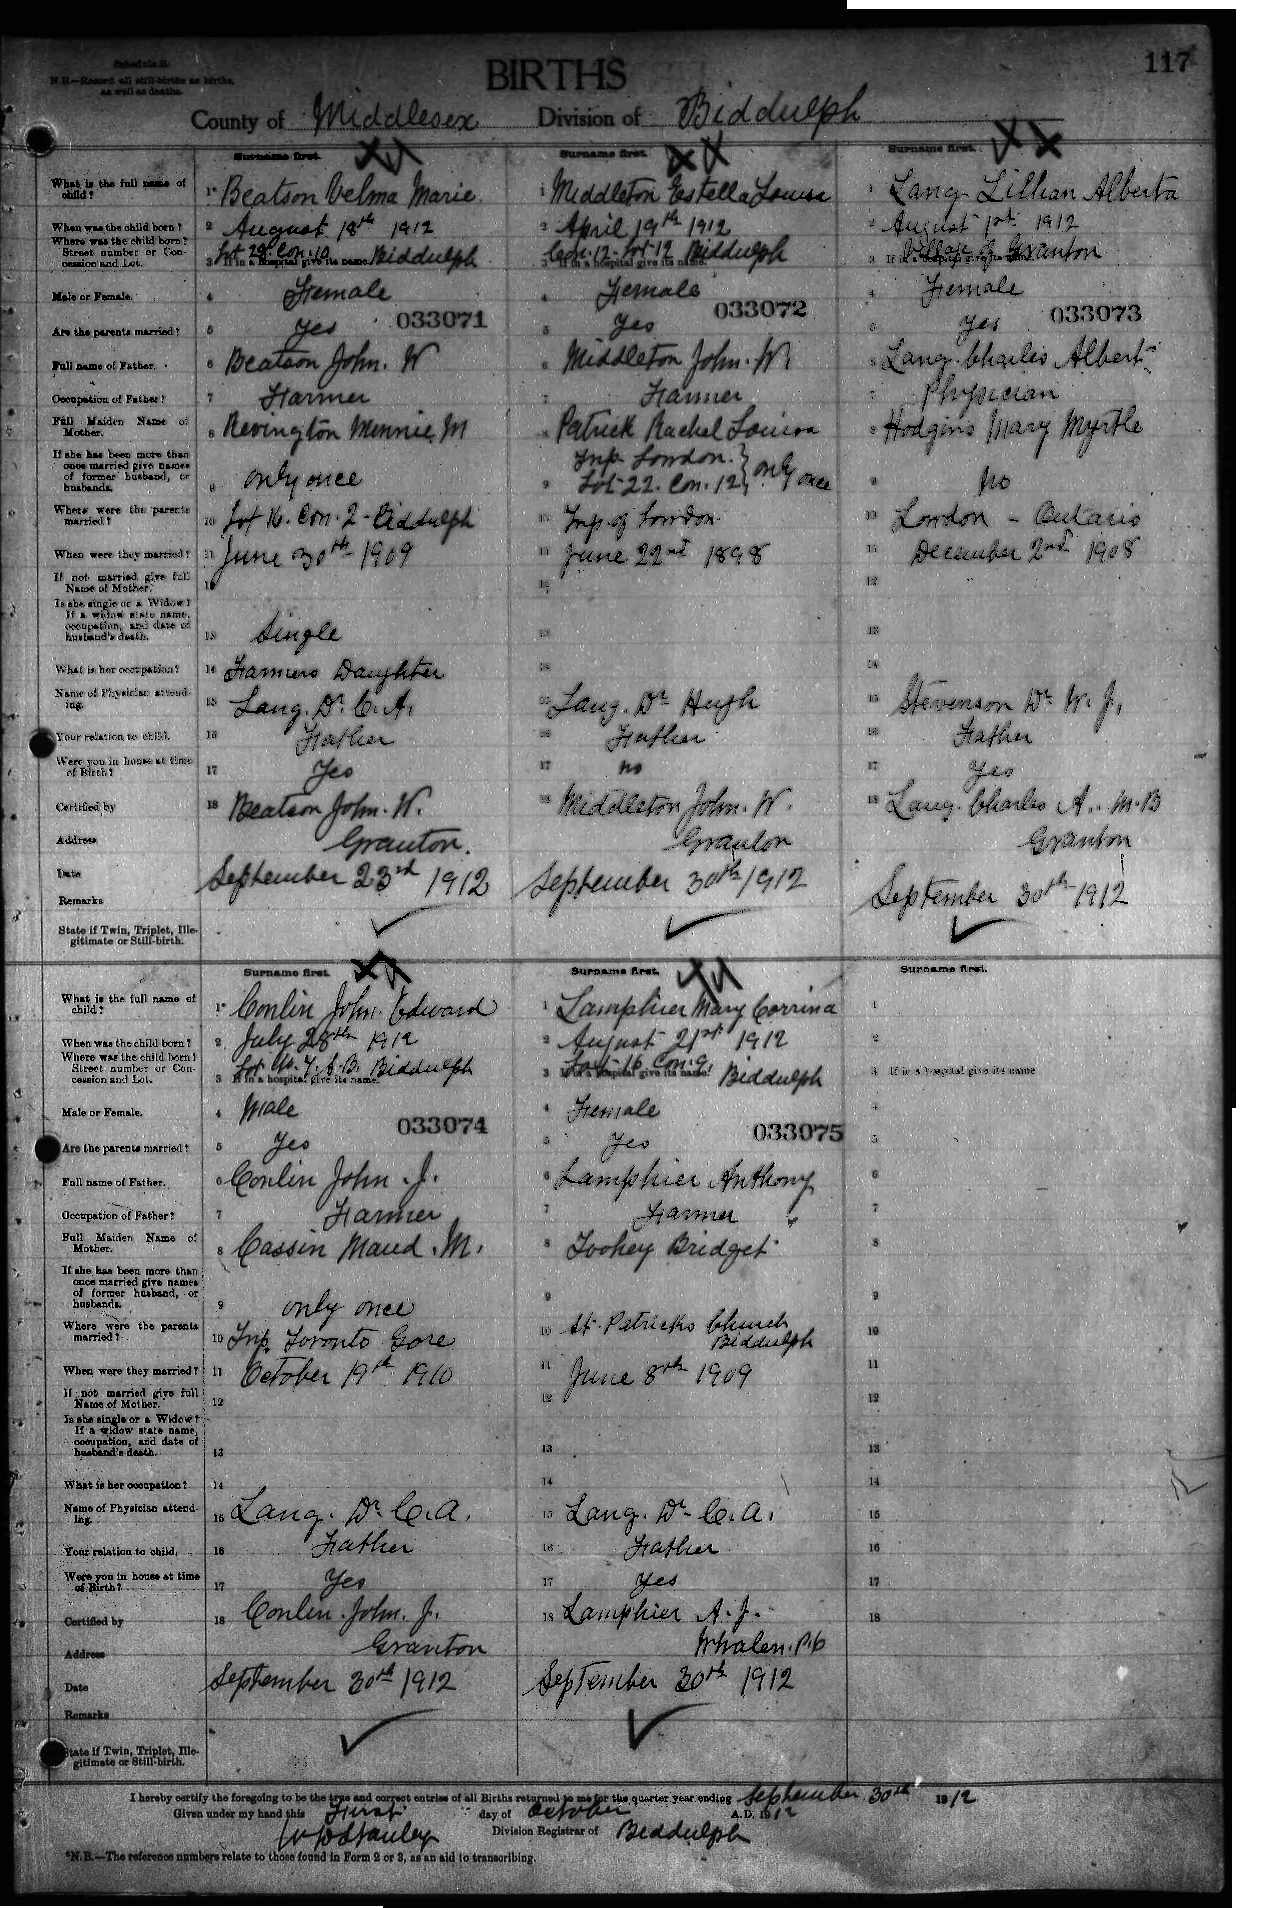 117
Schedule B.
N.B.—Record all still-births as births,
as well as deaths.
BIRTHS
County of Middlesex Division of Biddulph
Surname first. Surname first. Surname first.
What is the full name of child? 1* Beatson Velma Marie 1 Middleton Estella Louisa 1 Lang Lillian Alberta
When was the child born? 2 August 18th 1912 2 April 19th 1912 2 August 1st 1912
Where was the child born? Street number or Concession and Lot. 3 If in a hospital give its name. Lot 28. Con. 10 Biddulph 3 If in a hospital give its name. Con. 12. Lot 12 Biddulph 3 If in a hospital give its name. Village of Granton
Male or Female. 4 Female 4 Female 4 Female
033071 033072 033073
Are the parents married? 5 Yes 5 Yes 5 Yes
Full name of Father. 6 Beatson John. W 6 Middleton John. W. 6 Lang. Charles Albert
Occupation of Father? 7 Farmer 7 Farmer 7 Physician
Full Maiden Name of Mother. 8 Revington Minnie M 8 Patrick Rachel Louisa 8 Hodgins Mary Myrtle
If she has been more than once married give names of former husband, or husbands. 9 only once 9 Tnp. London. Lot 22. Con. 12 } only once 9 No
Where were the parents married? 10 Lot 16. Con. 2 - Biddulph 10 Tnp. of London. 10 London - Ontario
When were they married? 11 June 30th 1909 11 June 22nd 1898 11 December 2nd 1908
If not married give full Name of Mother. 12 12 12
Is she single or a Widow? If a widow state name, occupation, and date of husband's death. 13 Single 13 13
What is her occupation? 14 Farmers Daughter 14 14
Name of Physician attending. 15 Lang. Dr. C. A. 15 Lang. Dr Hugh 15 Stevenson Dr W. J.
Your relation to child. 16 Father 16 Father 16 Father
Were you in house at time of Birth? 17 Yes 17 no 17 Yes
Certified by 18 Beatson John. W. 18 Middleton John. W. 18 Lang. Charles A. M.B
Address Granton. Granton Granton
Date September 23rd 1912 September 30th 1912 September 30th 1912
Remarks
State if Twin, Triplet, Illegitimate or Still-birth.
Surname first. Surname first. Surname first.
What is the full name of child? 1* Conlin John Edward 1 Lamphier Mary Corrina 1
When was the child born? 2 July 28th 1912 2 August 21st 1912 2
Where was the child born? Street number or Concession and Lot. 3 If in a hospital give its name. Biddulph 3 If in a hospital give its name. Lot 16 Con. 9. Biddulph 3 If in a hospital give its name
Male or Female. 4 Male 4 Female 4
033074 033075
Are the parents married? 5 Yes 5 Yes 5
Full name of Father. 6 Conlin John. J. 6 Lamphier Anthony 6
Occupation of Father? 7 Farmer 7 Farmer 7
Full Maiden Name of Mother. 8 Cassin Maud. M. 8 Toohey Bridget 8
If she has been more than once married give names of former husband, or husbands. 9 only once 9 9
Where were the parents married? 10 Tnp. Toronto Gore 10 St. Patricks Church Biddulph 10
When were they married? 11 October 19th 1910 11 June 8th 1909 11
If not married give full Name of Mother. 12 12 12
Is she single or a Widow? If a widow state name, occupation, and date of husband's death. 13 13 13
What is her occupation? 14 14 14
Name of Physician attending. 15 Lang. Dr C. A. 15 Lang. Dr C. A. 15
Your relation to child. 16 Father 16 Father 16
Were you in house at time of Birth? 17 Yes 17 Yes 17
Certified by 18 Conlin. John. J. 18 Lamphier A. J. 18
Address Granton Whalen. P.O
Date September 30th 1912 September 30th 1912
Remarks
State if Twin, Triplet, Illegitimate or Still-birth.
I hereby certify the foregoing to be the true and correct entries of all Births returned to me for the quarter year ending September 30th 1912
Given under my hand this First day of October A.D. 1912
Stanley Division Registrar of Biddulph
*N.B.—The reference numbers relate to those found in Form 2 or 3, as an aid to transcribing.